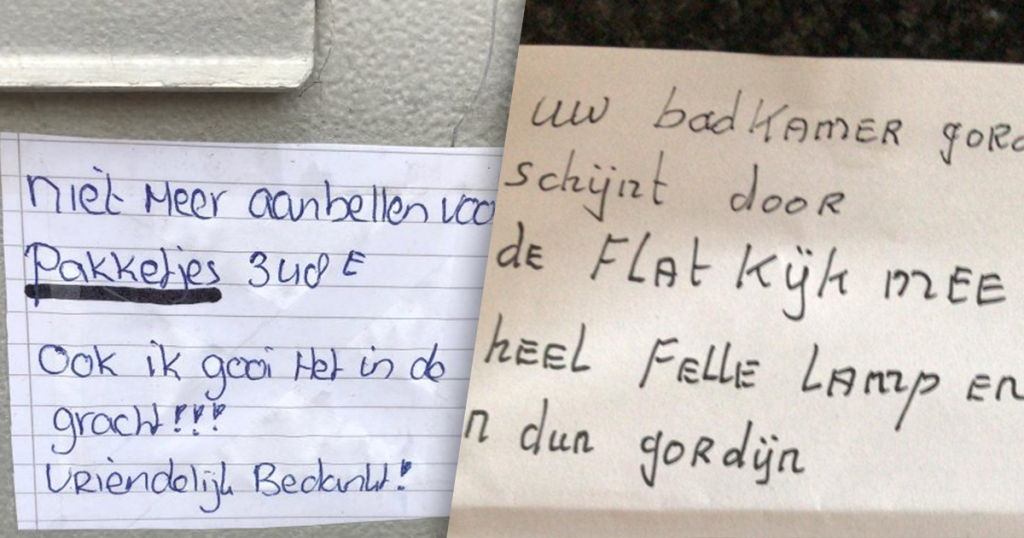 niet Meer aanbellen voo
Pakketjes
Ook ik gooi Het in de
gracht!!!
Vriendelijk Bedankt!
uw badkamer gord
schijnt door
de FLAt Kijk mee
hEEL FELLE LAmp en
n dun gordijn